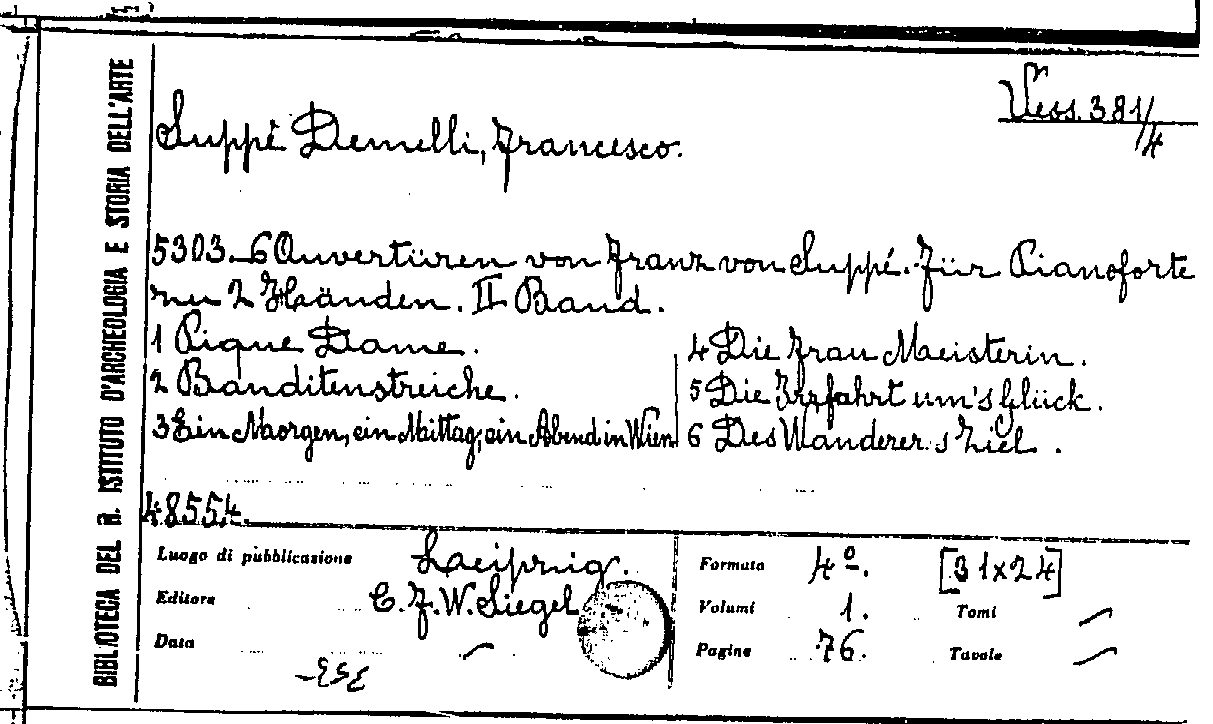 BIBLIOTECA DEL R. ISTITUTO D'ARCHEOLOGIA E STORIA DELL'ARTE
Vess. 381/4
Suppé Demelli, Francesco.
5303._6 Ouvertüren von Franz von Suppé. Für Pianoforte
nu 2 Händen. II Band.
1 Pique Dame.
2 Banditenstreiche.
3 Ein Morgen, ein Mittag, ein Abend in Wien
4 Die Frau Meisterin.
5 Die Irrfahrt um's Glück.
6 Des Wanderer's Ziel.
48554.
Luogo di pubblicazione Laeipnig.
Editore C.F.W. Siegel
Data –
Formato 4º. [31x24]
Volumi 1. Tomi –
Pagine 76. Tavole –